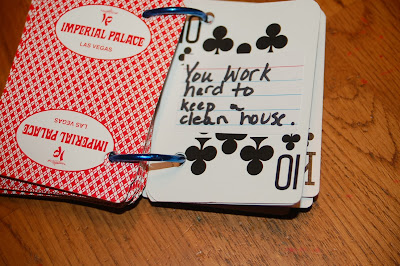 IMPERIAL PALACE
LAS VEGAS
IMPERIAL PALACE
LAS VEGAS
10
You Work
hard to
keep a
clean house.
10
K